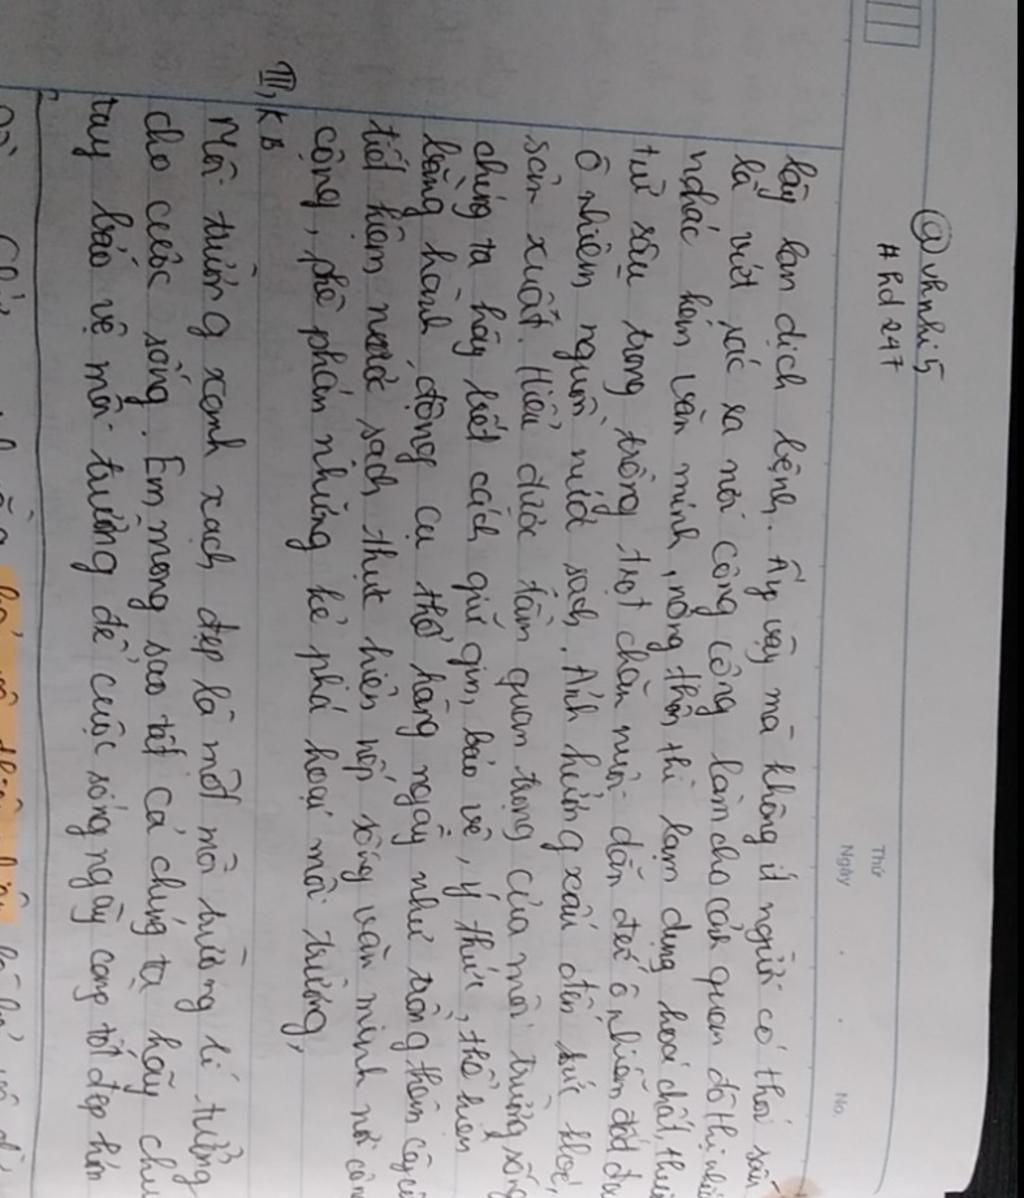 @nhnhi5
#hd247
Thứ
Ngày . . No.
lây lan dịch bệnh. Ấy vậy mà không ít người có thói
là vứt rác ra nơi công cộng làm cho cảnh quan đô thị
nhếc kém văn minh, nông thôn thì lạm dụng hoá chất,
trừ sâu trong trồng trọt chăn nuôi dẫn đến ô nhiễm đất
ô nhiễm nguồn nước sạch. Ảnh hưởng xấu đến sức khoẻ,
sản xuất. Hiểu được tầm quan trọng của môi trường sống
chúng ta hãy biết cách giữ gìn, bảo vệ, ý thức, thể hiện
bằng hành động cụ thể hàng ngày như trồng thêm cây
tiết kiệm nước sạch, thực hiện nếp sống văn minh nơi
cộng, phê phán những kẻ phá hoại môi trường,
III, KB
Môi trường xanh xạch đẹp là một môi trường lí tưởng
cho cuộc sống. Em mong sao tất cả chúng ta hãy
tay bảo vệ môi trường để cuộc sống ngày càng tốt đẹp hơn